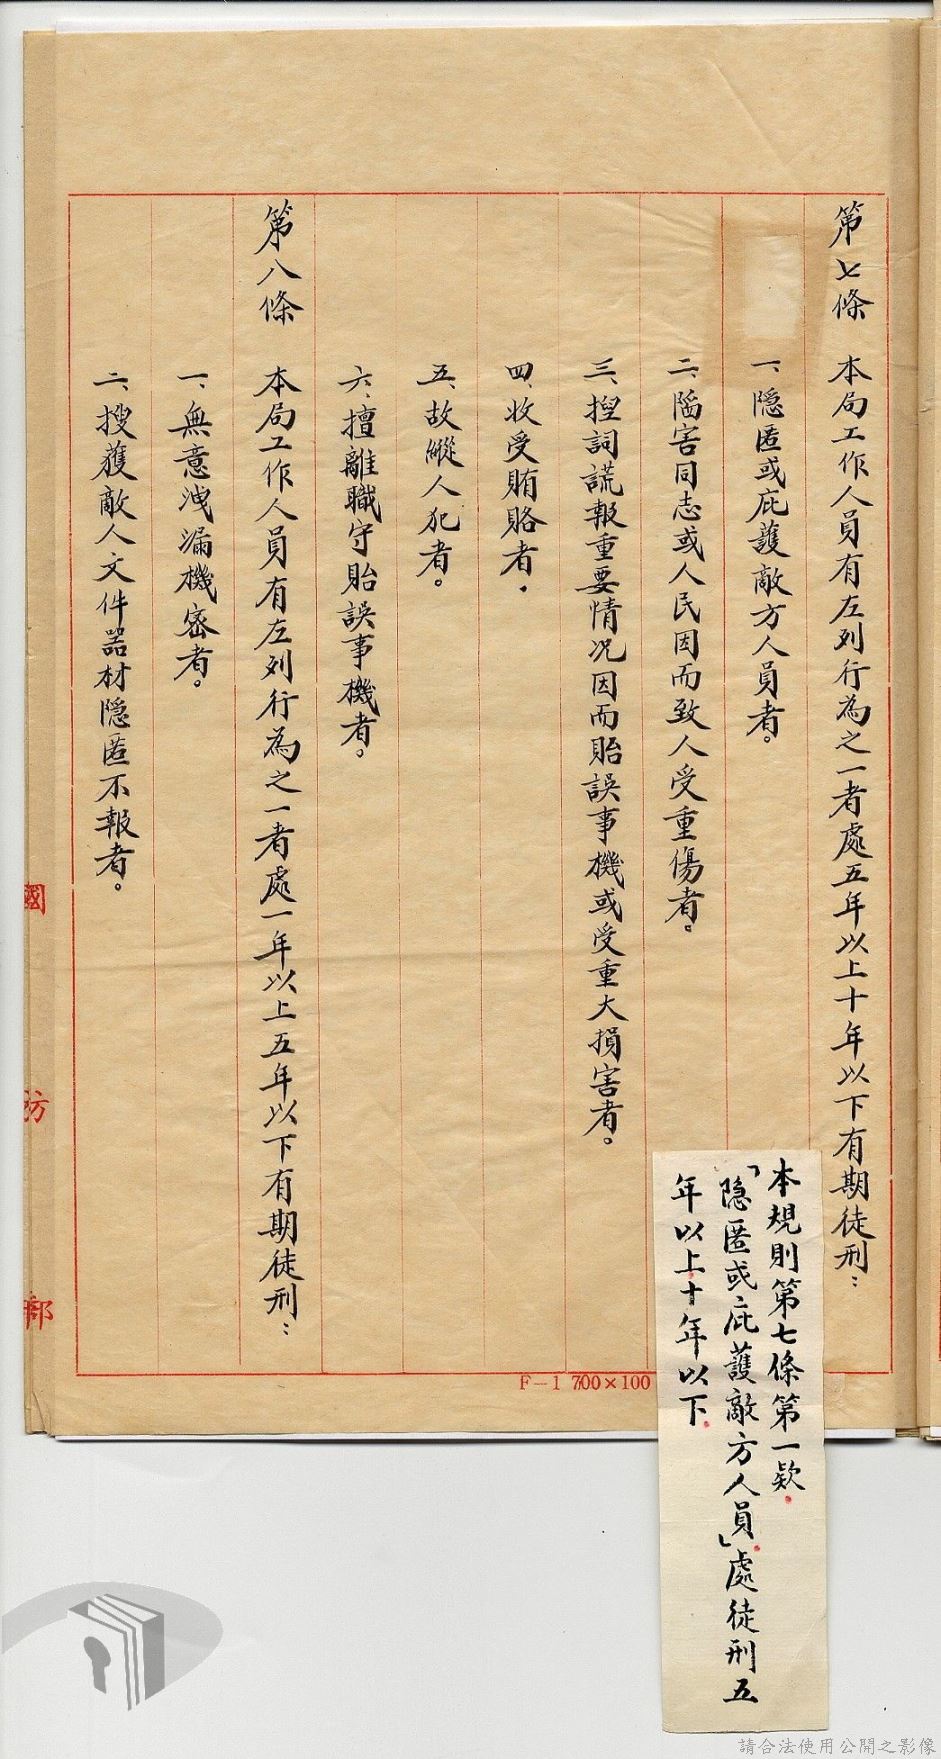 第七條　本局工作人員有左列行為之一者處五年以上十年以下有期徒刑：
一、隱匿或庇護敵方人員者。
二、陷害同志或人民因而致人受重傷者。
三、揑詞謊報重要情况因而貽誤事機或受重大損害者。
四、收受賄賂者．
五、故縱人犯者。
六、擅離職守貽誤事機者。
第八條　本局工作人員有左列行為之一者處一年以上五年以下有期徒刑：
一、無意洩漏機密者。
二、搜獲敵人文件器材隱匿不報者。
國防部
F-1 700×100
本規則第七條第一欵。
「隱匿或庇護敵方人員」處徒刑五
年以上十年以下。
請合法使用公開之影像